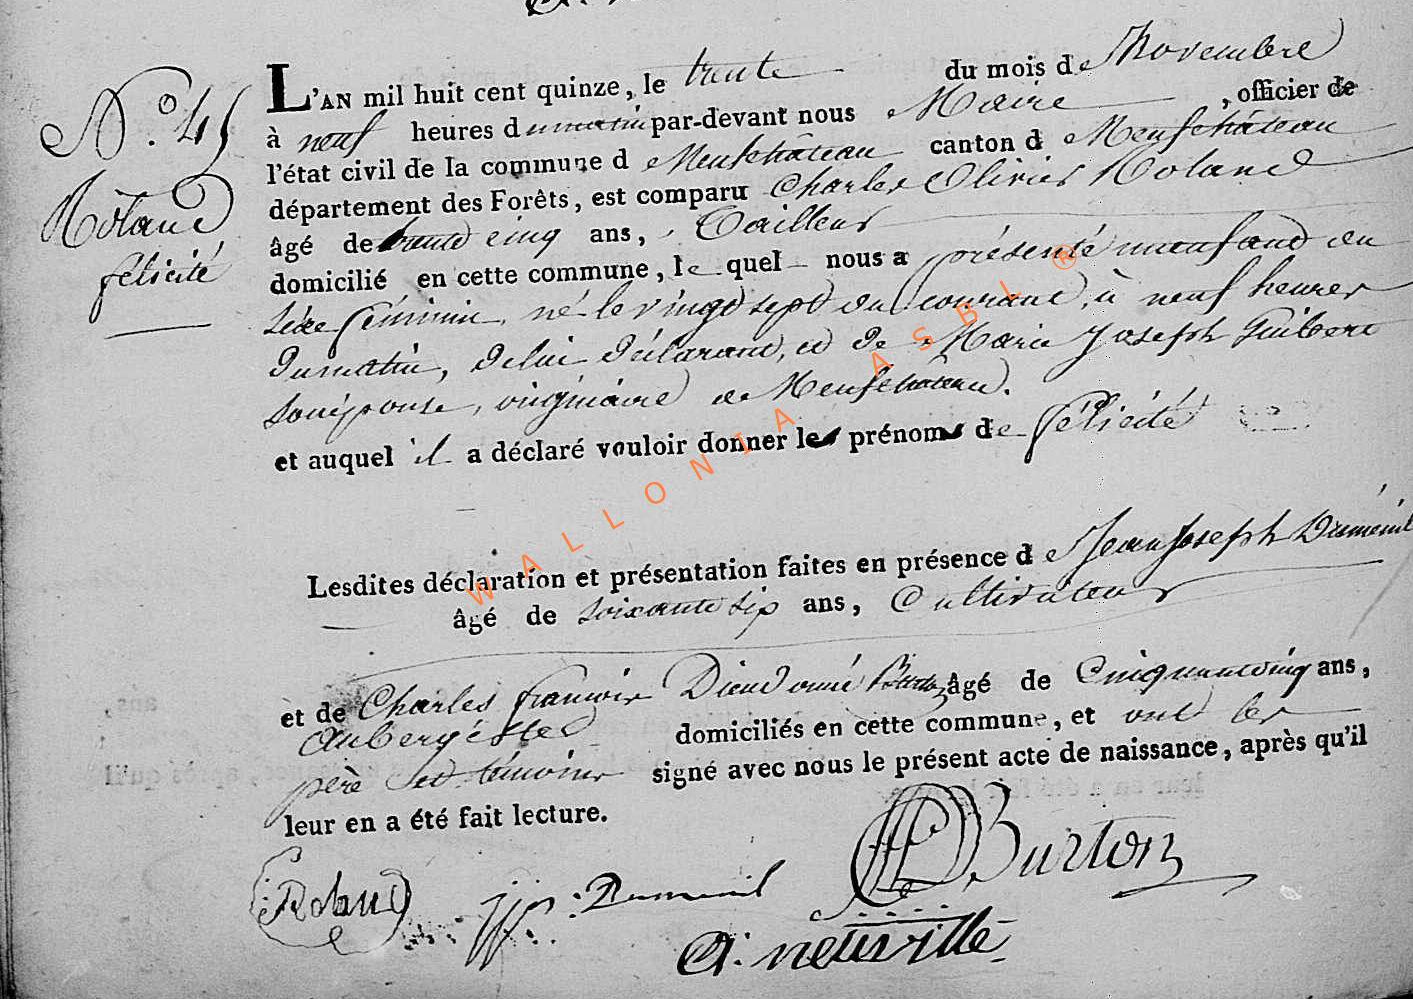 N.° 45
Roland
félicité
L'AN mil huit cent quinze, le trente du mois de Novembre
à neuf heures du matin par-devant nous Maire, officier de
l'état civil de la commune de Neufchâteau canton de Neufchâteau
département des Forêts, est comparu Charles Olivier Roland
âgé de trente cinq ans, Tailleur
domicilié en cette commune, lequel nous a présenté un enfant du
sexe féminin, né le vingt sept du courant, à neuf heures
du matin, de lui déclarant, et de Marie Joseph Guibert
son épouse, originaire de Neufchâteau.
et auquel il a déclaré vouloir donner les prénoms de félicité
Lesdites déclaration et présentation faites en présence de Jean Joseph Duménil
âgé de soixante six ans, Cultivateur
et de Charles françois Dieudonné Burton âgé de Cinquante cinq ans,
aubergiste domiciliés en cette commune, et ont les
père et témoins signé avec nous le présent acte de naissance, après qu'il
leur en a été fait lecture.
Roland JJ: Dumenil CFD Burton
A: neuville
WALLONIA ASBL ®